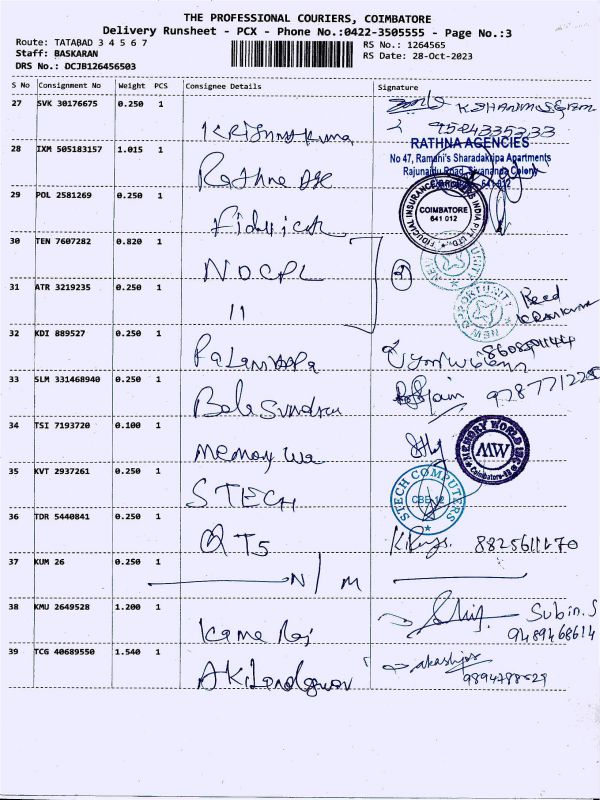 THE PROFESSIONAL COURIERS, COIMBATORE
Delivery Runsheet - PCX - Phone No.:0422-3505555 - Page No.:3
Route: TATABAD 3 4 5 6 7
RS No.: 1264565
Staff: BASKARAN
RS Date: 28-Oct-2023
DRS No.: DCJB126456503
S No Consignment No Weight PCS Consignee Details Signature
27 SVK 30176675 0.250 1
Krishna Kuma
28 IXM 505183157 1.015 1
RATHNA AGENCIES
No 47, Ramani's Sharadakripa Apartments
Rajunaidu Road, Sivananda Colony
641 012
Rathna Age
29 POL 2581269 0.250 1
FIDUCIAL INSURANCE BROKERS INDIA PVT. LTD.
COIMBATORE
641 012
30 TEN 7607282 0.820 1
NOCPL
31 ATR 3219235 0.250 1
11
NEW OPPORTUNITY
32 KDI 889527 0.250 1
33 SLM 331468940 0.250 1
Bala Sundra
34 TSI 7193720 0.100 1
Memory Wo
MEMORY WORLD
MW
Coimbatore-12
35 KVT 2937261 0.250 1
STECH
STECH COMPUTERS
CBE-12
36 TDR 5440841 0.250 1
QTS
8825611170
37 KUM 26 0.250 1
N/M
38 KMU 2649528 1.200 1
Kama Raj
Subin.S
9489468614
39 TCG 40689550 1.540 1